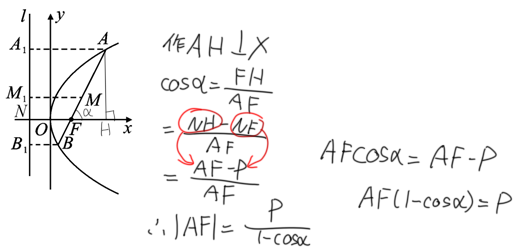 l
y
A₁
A
M₁
M
N
α
O
F
H
x
B₁
B
作AH⊥X
cosα=FH/AF
=(NH-NF)/AF
=(AF-P)/AF
∴|AF|=P/(1-cosα)
AFcosα=AF-P
AF(1-cosα)=P